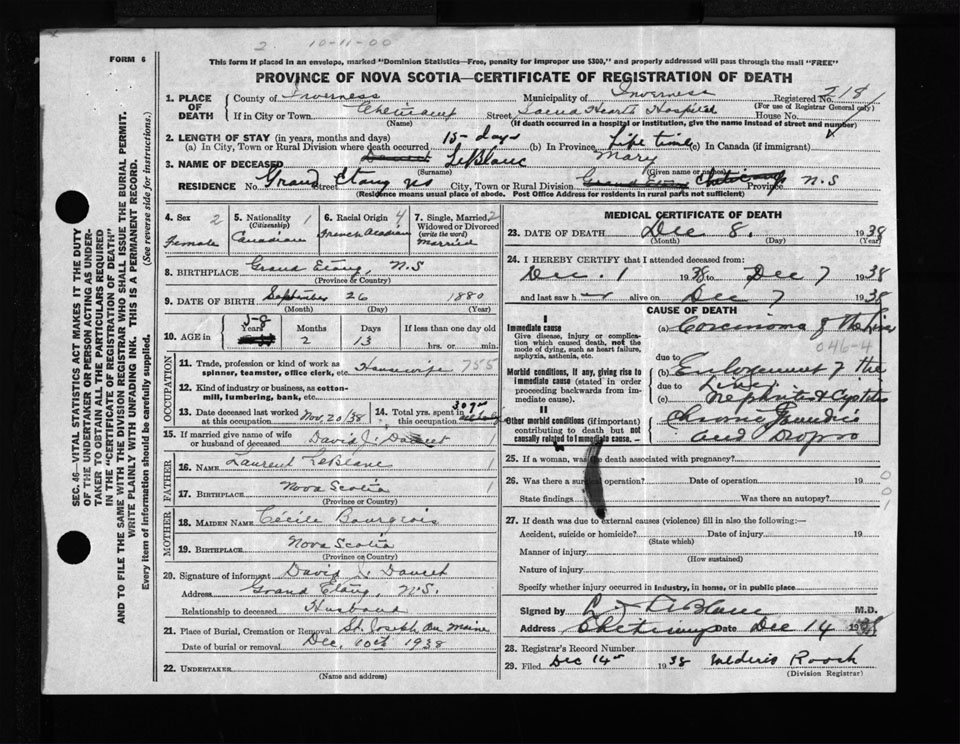 2 10-11-00
FORM 6
This form if placed in an envelope, marked "Dominion Statistics—Free, penalty for improper use $300," and properly addressed will pass through the mail "FREE"
PROVINCE OF NOVA SCOTIA—CERTIFICATE OF REGISTRATION OF DEATH
1. PLACE OF DEATH County of Inverness Municipality of Inverness Registered No. 218
(For use of Registrar General only)
If in City or Town Cheticamp Street Sacred Heart Hospital House No.
(Name) (If death occurred in a hospital or institution, give the name instead of street and number)
2. LENGTH OF STAY (in years, months and days)
(a) In City, Town or Rural Division where death occurred 15-days (b) In Province Life time (c) In Canada (if immigrant)
3. NAME OF DECEASED LeBlanc Mary
(Surname) (Given name or names)
RESIDENCE No. Grand Etang NS Street City, Town or Rural Division Grand Etang Cheticamp Province N.S
(Residence means usual place of abode. Post Office Address for residents in rural parts not sufficient)
4. Sex 2 Female
5. Nationality (Citizenship) 1 Canadian
6. Racial Origin 4 French Acadian
7. Single, Married, Widowed or Divorced (write the word) 2 Married
8. BIRTHPLACE Grand Etang, N.S
(Province or Country)
9. DATE OF BIRTH September 26 1880
(Month) (Day) (Year)
10. AGE in 58 Years 2 Months 13 Days If less than one day hrs. or min.
OCCUPATION
11. Trade, profession or kind of work as spinner, teamster, office clerk, etc. Housewife 755
12. Kind of industry or business, as cotton-mill, lumbering, bank, etc.
13. Date deceased last worked at this occupation Nov 20/38 14. Total yrs. spent in this occupation
15. If married give name of wife or husband of deceased David J. Doucet 1
FATHER
16. NAME Laurent LeBlanc 1
17. BIRTHPLACE Nova Scotia 1
(Province or Country)
MOTHER
18. MAIDEN NAME Cécile Bourgeois
19. BIRTHPLACE Nova Scotia
(Province or Country)
20. Signature of informant David J. Doucet
Address Grand Etang, N.S.
Relationship to deceased Husband
21. Place of Burial, Cremation or Removal St. Joseph du Moine
Date of burial or removal Dec. 10th 1938
22. UNDERTAKER
(Name and address)
MEDICAL CERTIFICATE OF DEATH
23. DATE OF DEATH Dec 8. 1938
(Month) (Day) (Year)
24. I HEREBY CERTIFY that I attended deceased from:
Dec. 1 1938 to Dec 7 1938
and last saw h alive on Dec 7 1938
CAUSE OF DEATH
I
Immediate cause
Give disease, injury or complication which caused death, not the mode of dying, such as heart failure, asphyxia, asthenia, etc.
(a) Carcinoma of the Liver
046-4
due to
Morbid conditions, if any, giving rise to immediate cause (stated in order proceeding backwards from immediate cause).
(b) Enlargement of the
due to Liver
(c) Nephritis & Cystitis
II
Other morbid conditions (if important) contributing to death but not causally related to immediate cause.
Chronic Jaundice
and Dropsy
25. If a woman, was the death associated with pregnancy?
26. Was there a surgical operation? Date of operation 19 0
State findings Was there an autopsy? 0
1
27. If death was due to external causes (violence) fill in also the following:—
Accident, suicide or homicide? Date of injury 19
(State which)
Manner of injury
(How sustained)
Nature of injury
Specify whether injury occurred in industry, in home, or in public place
Signed by L J LeBlanc M.D.
Address Cheticamp Date Dec 14 1938
28. Registrar's Record Number
29. Filed Dec 14th 1938 Roach
(Division Registrar)
SEC. 46—VITAL STATISTICS ACT MAKES IT THE DUTY
OF THE UNDERTAKER OR PERSON ACTING AS UNDER-
TAKER TO OBTAIN ALL THE PARTICULARS REQUIRED
IN THE "CERTIFICATE OF REGISTRATION OF DEATH"
AND TO FILE THE SAME WITH THE DIVISION REGISTRAR WHO SHALL ISSUE THE BURIAL PERMIT.
WRITE PLAINLY WITH UNFADING INK. THIS IS A PERMANENT RECORD.
Every item of information should be carefully supplied. (See reverse side for instructions.)